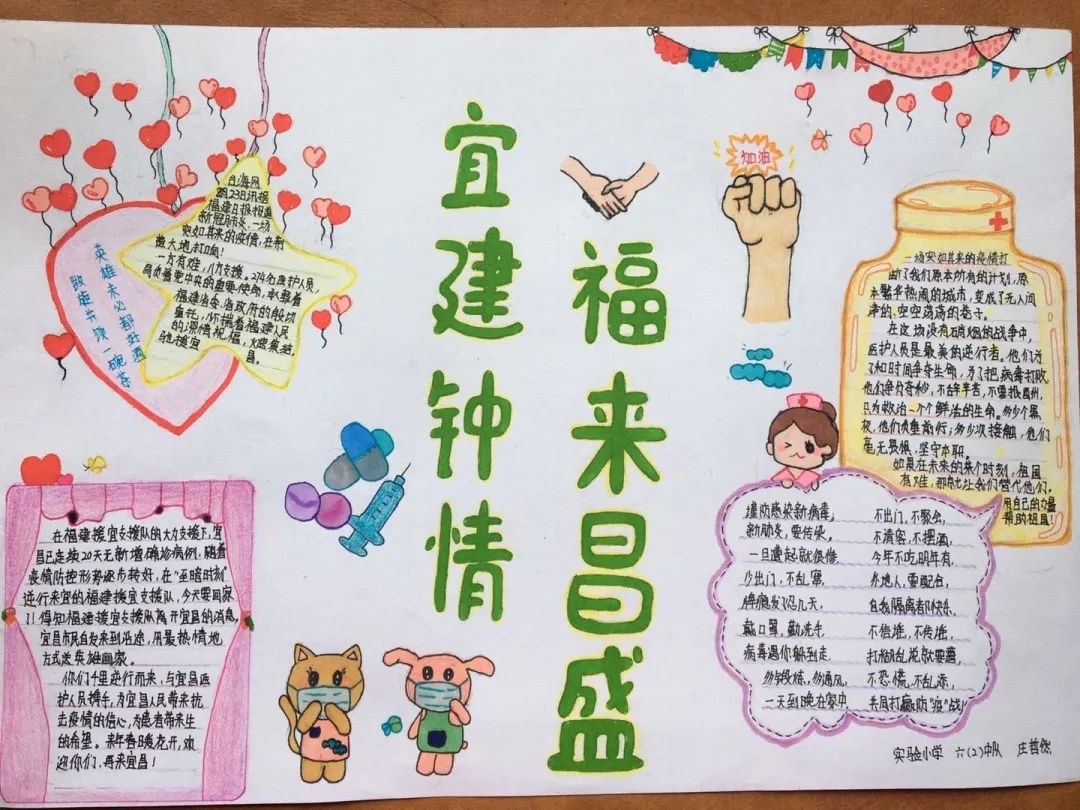 宜建钟情
福来昌盛
加油
英雄未必都好酒
敬
一碗茶
台海网
2月23日讯据
福建日报报道
新冠肺炎,一场
突如其来的疫情,在荆
楚大地打响!
一方有难,八方支援。274名医护人员,
肩负着党中央的重要使命,承载着
福建省委、省政府的殷切
重托,怀揣着福建人民
的深情祝福,火速集结,
驰援宜昌。
在福建援宜支援队的大力支援下,宜
昌已连续20天无新增确诊病例,随着
疫情防控形势逐步转好,在“至暗时刻”
逆行来宜的福建援宜支援队,今天要回家
了!得知福建援宜支援队离开宜昌的消息,
宜昌市民自发来到沿途,用最热情地
方式送英雄回家。
你们千里逆行而来,与宜昌医
护人员携手,为宜昌人民带来抗
击疫情的信心,为患者带来生
的希望。来年春暖花开,欢
迎你们,再来宜昌!
一场突如其来的疫情打
断了我们原本所有的计划,原
本繁华热闹的城市,变成了无人问
津的,空空荡荡的巷子。
在这场没有硝烟的战争中,
医护人员是最美的逆行者。他们为
了和时间争夺生命,为了把病毒打败,
他们争分夺秒,不辞辛苦,不畏艰
只为救治一个个鲜活的生命。多少个黑
夜,他们负重前行;多少次接触,他们
毫无畏惧,坚守本职。
如果在未来的某个时刻,祖国
有难,那就让我们替代他们。
用自己的力量
帮助祖国!
谨防感染新病毒, 不出门,不聚会,
新肺炎,要传染。 不请客,不摆酒,
一旦遭起就很惨 今年不吃明年有
少出门,不乱窜, 外地人,要配合,
忍几天, 自我隔离都快乐,
戴口罩,勤洗手, 不信谣,不传谣,
病毒遇你躲到走. 打胡乱说就要遭,
多锻炼,多通风, 不恐慌,不乱
一天到晚在家中. 共同打赢防“疫”战!
实验小学 六(2)中队 庄哲然